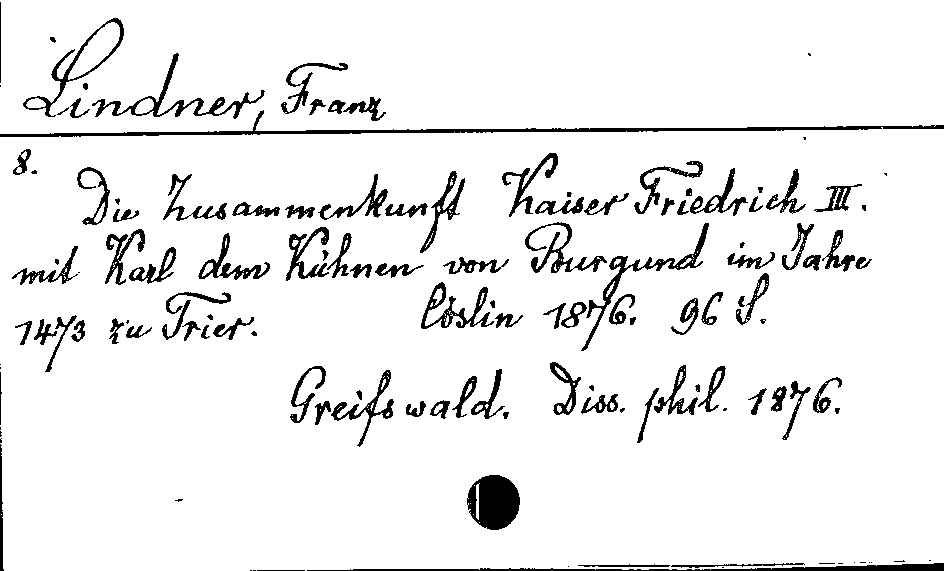 Lindner, Franz
8.
Die Zusammenkunft Kaiser Friedrich III.
mit Karl dem Kühnen von Burgund im Jahre
1473 zu Trier. Cöslin 1876. 96 S.
Greifswald. Diss. phil. 1876.